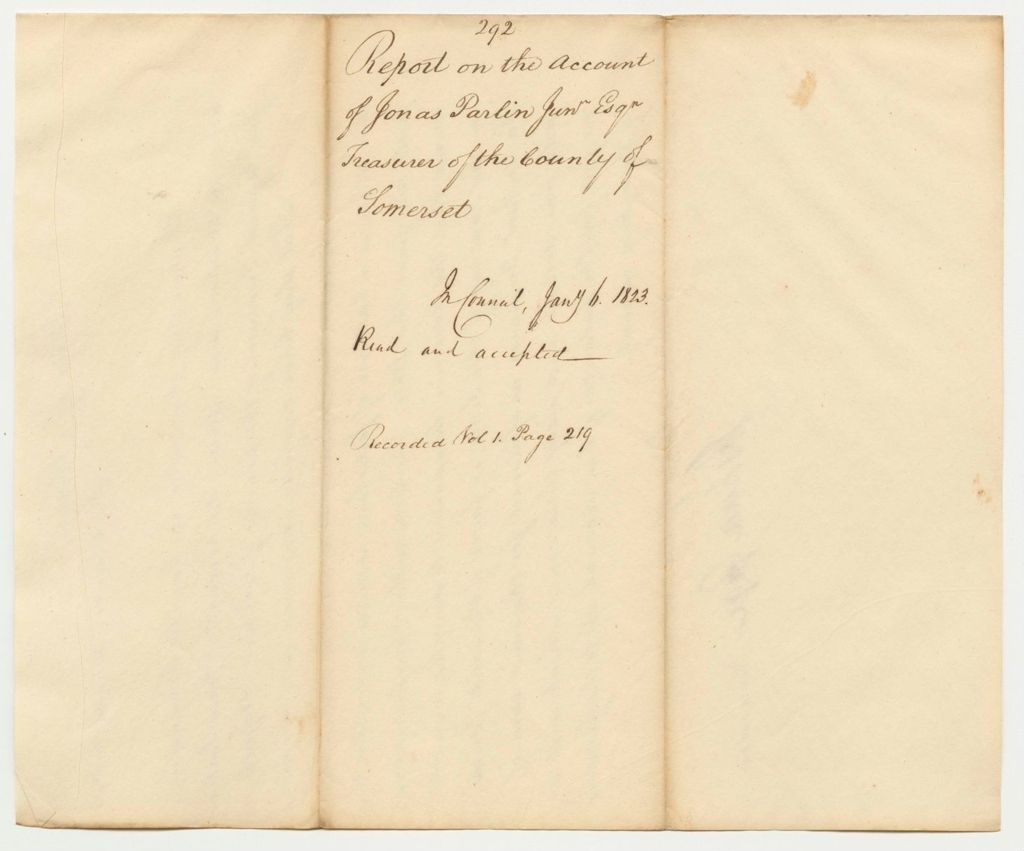 292
Report on the Account
of Jonas Parlin Junr Esqr
Treasurer of the County of
Somerset
In Council, Jany 6. 1823.
Read and accepted
Recorded Vol 1. Page 219